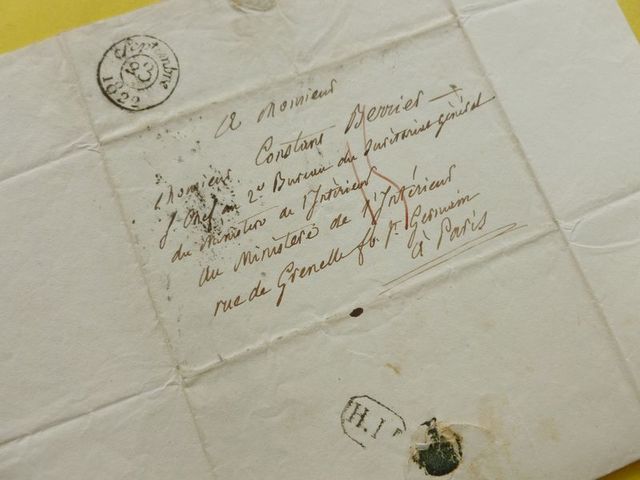 Septembre
23
1822
A Monsieur
Monsieur Constant Berrier
Chef au 2e Bureau du Secrétariat Général
du Ministère de l'Intérieur
au Ministère de l'Intérieur
rue de Grenelle fb St Germain
à Paris
H.1